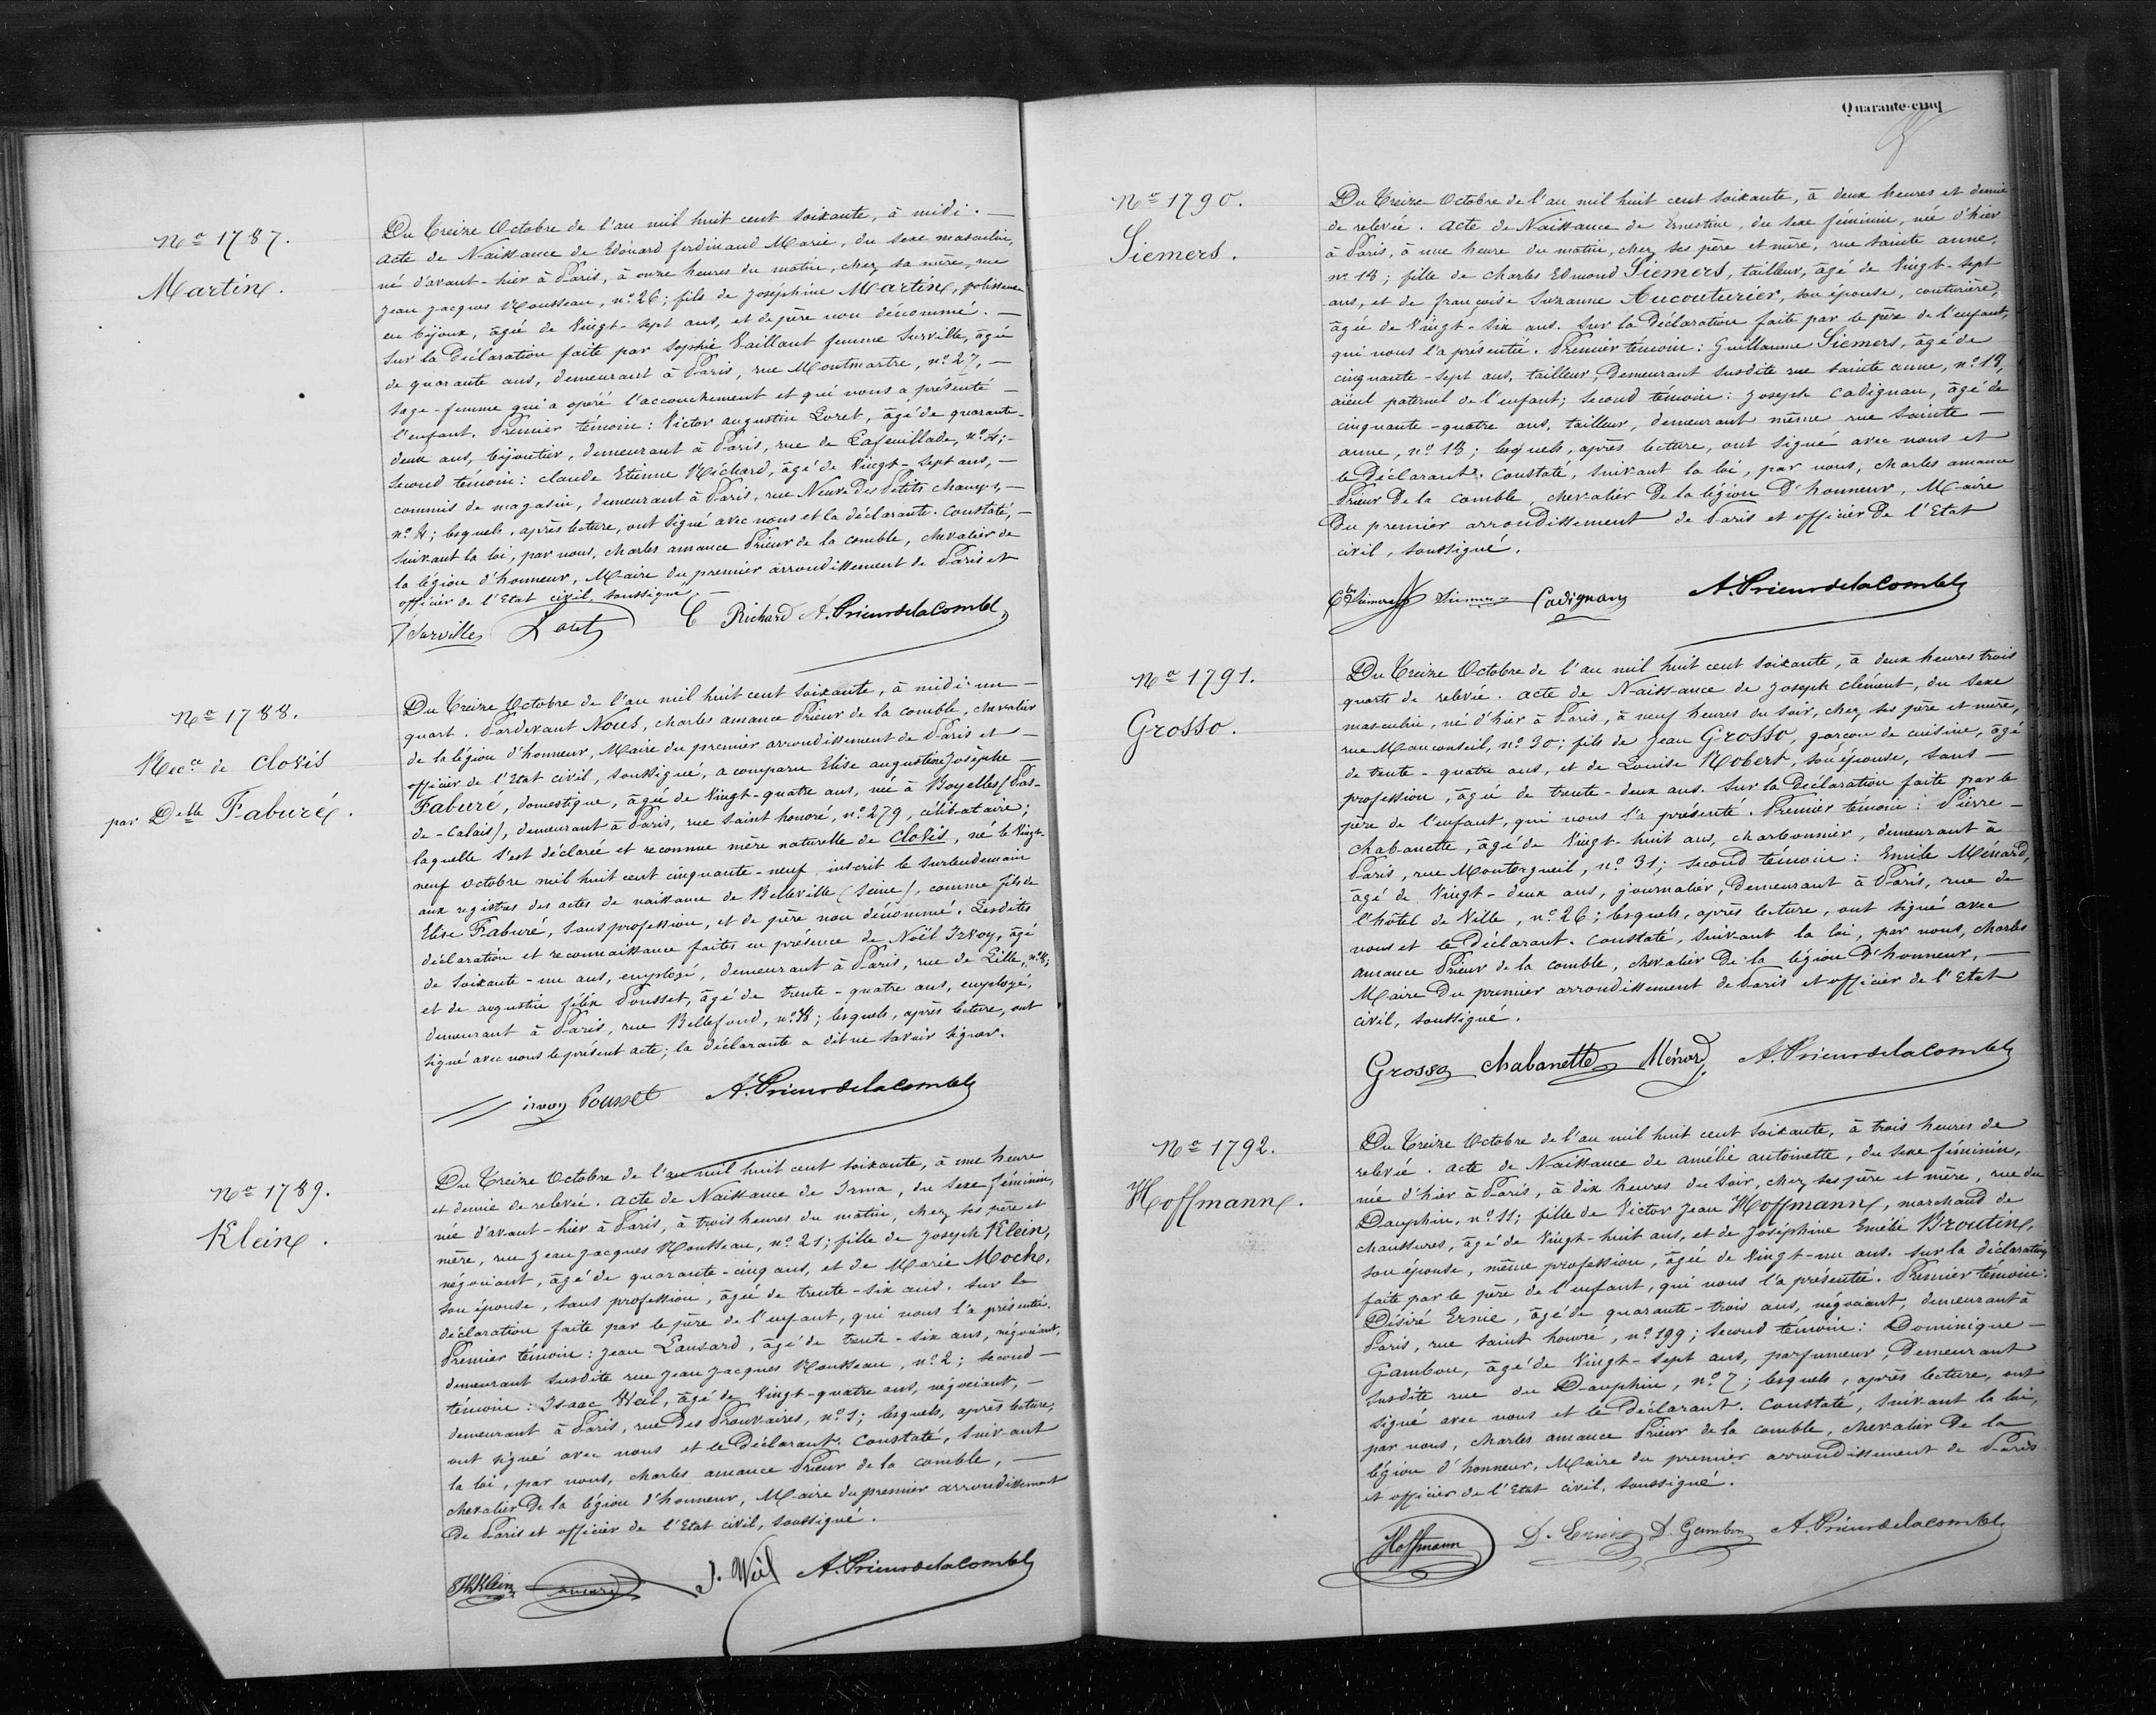 No 1787.
Martin.
Du Treize Octobre de l'an mil huit cent soixante, à midi. —
acte de Naissance de Edouard ferdinand Marie, du sexe masculin,
né d'avant-hier à Paris, à onze heures du matin, chez sa mère, rue
Jean Jacques Rousseau, no 26; fils de Joséphine Martin, polisseuse
en bijoux, âgée de vingt-sept ans, et de père non dénommé. —
Sur la déclaration faite par Sophie Vaillant femme Surville, âgée
de quarante ans, demeurant à Paris, rue Montmartre, no 27, —
sage-femme qui a opéré l'accouchement et qui nous a présenté —
l'enfant. Premier témoin: Victor augustin Loret, âgé de quarante-
deux ans, bijoutier, demeurant à Paris, rue de Lafeuillade, no 4; —
Second témoin: claude Etienne Richard, âgé de vingt-sept ans, —
commis de magasin, demeurant à Paris, rue Neuve des Petits champs, —
no 4; lesquels, après lecture, ont signé avec nous et la déclarante. Constaté, —
suivant la loi, par nous, charles amance Prieur de la comble, chevalier de
la légion d'honneur, Maire du premier arrondissement de Paris et
officier de l'Etat civil, soussigné. —
f Surville Loret C Richard A. Prieur de la Comble
No 1788.
Recce de Clovis
par Delle Faburé.
Du Treize Octobre de l'an mil huit cent soixante, à midi un —
quart. Pardevant Nous, charles amance Prieur de la comble, chevalier
de la légion d'honneur, Maire du premier arrondissement de Paris et —
officier de l'Etat civil, soussigné, a comparu Elise augustine Josèphe —
Faburé, domestique, âgée de vingt-quatre ans, née à Boyelles (Pas-
de-Calais), demeurant à Paris, rue saint honoré, no 279, célibataire;
laquelle s'est déclarée et reconnue mère naturelle de Clovis, né le vingt-
neuf octobre mil huit cent cinquante-neuf, inscrit le surlendemain
aux registres des actes de naissance de Belleville (Seine), comme fils de
Elise Faburé, sans profession, et de père non dénommé. Lesdites
déclaration et reconnaissance faites en présence de Noël Irvoy, âgé
de soixante-un ans, employé, demeurant à Paris, rue de Lille,
et de augustin félix Pousset, âgé de trente-quatre ans, employé,
demeurant à Paris, rue Bellefond, lesquels, après lecture, ont
signé avec nous le présent acte; la déclarante a dit ne savoir signer.
irvoy Pousset A. Prieur de la Comble
No 1789.
Klein.
Du Treize Octobre de l'an mil huit cent soixante, à une heure
et demie de relevée. acte de Naissance de Irma, du sexe féminin,
née d'avant-hier à Paris, à trois heures du matin, chez ses père et
mère, rue Jean Jacques Rousseau, no 21; fille de Joseph Klein,
négociant, âgé de quarante-cinq ans, et de Marie Moch,
son épouse, sans profession, âgée de trente-six ans. sur la
déclaration faite par le père de l'enfant, qui nous l'a présentée.
Premier témoin: Jean Lansard, âgé de trente-six ans, négociant,
demeurant susdite rue Jean Jacques Rousseau, no 2; second —
témoin: Isaac Weil, âgé de vingt-quatre ans, négociant, —
demeurant à Paris, rue des Prouvaires, no 1; lesquels, après lecture,
ont signé avec nous et le Déclarant. Constaté, suivant
la loi, par nous, charles amance Prieur de la comble, —
chevalier de la légion d'honneur, Maire du premier arrondissement
de Paris et officier de l'Etat civil, soussigné.
Klein J. Weil A. Prieur de la Comble
Quarante-cinq
No 1790.
Siemers.
Du Treize Octobre de l'an mil huit cent soixante, à deux heures et demie
de relevée. acte de Naissance de Ernestine, du sexe féminin, née d'hier
à Paris, à une heure du matin, chez ses père et mère, rue sainte anne,
no 18; fille de charles Edmond Siemers, tailleur, âgé de vingt-sept
ans, et de françoise Suzanne Aucouturier, son épouse, couturière,
âgée de vingt-six ans. Sur la Déclaration faite par le père de l'enfant,
qui nous l'a présentée. Premier témoin: Guillaume Siemers, âgé de
cinquante-sept ans, tailleur, Demeurant susdite rue sainte anne, no 18,
aïeul paternel de l'enfant; second témoin: Joseph Cadignan, âgé de
cinquante-quatre ans, tailleur, demeurant même rue sainte —
anne, no 18; lesquels, après lecture, ont signé avec nous et
le Déclarant. Constaté, suivant la loi, par nous, charles amance
Prieur De la comble, chevalier De la légion D'honneur, Maire
Du premier arrondissement de Paris et officier De l'Etat
civil, soussigné.
Siemers Siemers Cadignan A. Prieur de la Comble
No 1791.
Grosso.
Du Treize Octobre de l'an mil huit cent soixante, à deux heures trois
quarts de relevée. acte de Naissance de Joseph clément, du sexe
masculin, né d'hier à Paris, à neuf heures du soir, chez ses père et mère,
rue Mauconseil, no 30; fils de Jean Grosso, garçon de cuisine, âgé
de trente-quatre ans, et de Louise Robert, son épouse, sans —
profession, âgée de trente-deux ans. Sur la Déclaration faite par le
père de l'enfant, qui nous l'a présenté. Premier témoin: Pierre —
chabanette, âgé de vingt-huit ans, charbonnier, demeurant à
Paris, rue Montorgueil, no 31; second témoin: Emile Ménard,
âgé de vingt-deux ans, journalier, Demeurant à Paris, rue de
l'hôtel de Ville, no 26; lesquels, après lecture, ont signé avec
nous et le Déclarant. Constaté, suivant la loi, par nous, charles
amance Prieur de la comble, chevalier De la légion D'honneur, —
Maire Du premier arrondissement de Paris et officier de l'Etat
civil, soussigné.
Grosso chabanette Ménard A. Prieur de la Comble
No 1792.
Hoffmann.
Du Treize Octobre de l'an mil huit cent soixante, à trois heures de
relevée. acte de Naissance de amélie antoinette, du sexe féminin,
née d'hier à Paris, à dix heures du soir, chez ses père et mère, rue du
Dauphin, no 11; fille de Victor Jean Hoffmann, marchand de
chaussures, âgé de vingt-huit ans, et de Joséphine Emélie Broutin,
son épouse, même profession, âgée de vingt-un ans. sur la déclaration
faite par le père de l'enfant, qui nous l'a présentée. Premier témoin:
Désiré Ernie, âgé de quarante-trois ans, négociant, demeurant à
Paris, rue saint honoré, no 199; second témoin: Dominique —
Gambon, âgé de vingt-sept ans, parfumeur, Demeurant
susdite rue du Dauphin, no 7; lesquels, après lecture, ont
signé avec nous et le Déclarant. Constaté, suivant la loi,
par nous, charles amance Prieur de la comble, chevalier De la
légion d'honneur, Maire du premier arrondissement de Paris
et officier de l'Etat civil, soussigné.
Hoffmann D. Ernie D. Gambon A. Prieur de la Comble